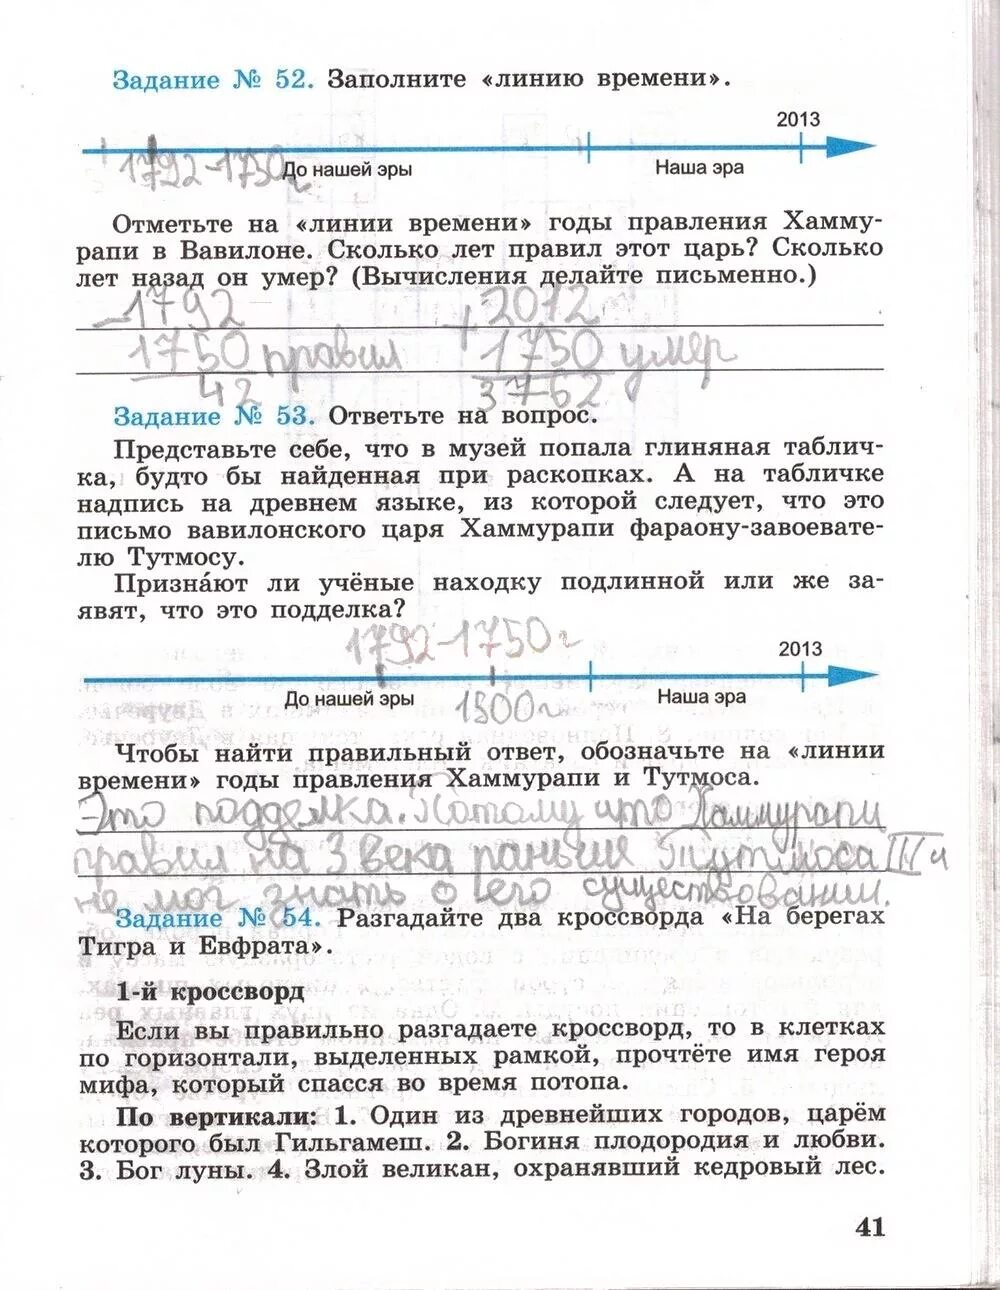 Задание № 52. Заполните «линию времени».
2013
1792-1750г
До нашей эры
Наша эра
Отметьте на «линии времени» годы правления Хамму-
рапи в Вавилоне. Сколько лет правил этот царь? Сколько
лет назад он умер? (Вычисления делайте письменно.)
-1792 +2012
1750 правил 1750 умер
42 3762
Задание № 53. Ответьте на вопрос.
Представьте себе, что в музей попала глиняная таблич-
ка, будто бы найденная при раскопках. А на табличке
надпись на древнем языке, из которой следует, что это
письмо вавилонского царя Хаммурапи фараону-завоевате-
лю Тутмосу.
Призна́ют ли учёные находку подлинной или же за-
явят, что это подделка?
1792-1750г
2013
До нашей эры
1500г
Наша эра
Чтобы найти правильный ответ, обозначьте на «линии
времени» годы правления Хаммурапи и Тутмоса.
Это подделка. Потому что Хаммурапи
правил на 3 века раньше Тутмоса III и
не мог знать о его существовании.
Задание № 54. Разгадайте два кроссворда «На берегах
Тигра и Евфрата».
1-й кроссворд
Если вы правильно разгадаете кроссворд, то в клетках
по горизонтали, выделенных рамкой, прочтёте имя героя
мифа, который спасся во время потопа.
По вертикали: 1. Один из древнейших городов, царём
которого был Гильгамеш. 2. Богиня плодородия и любви.
3. Бог луны. 4. Злой великан, охранявший кедровый лес.
41